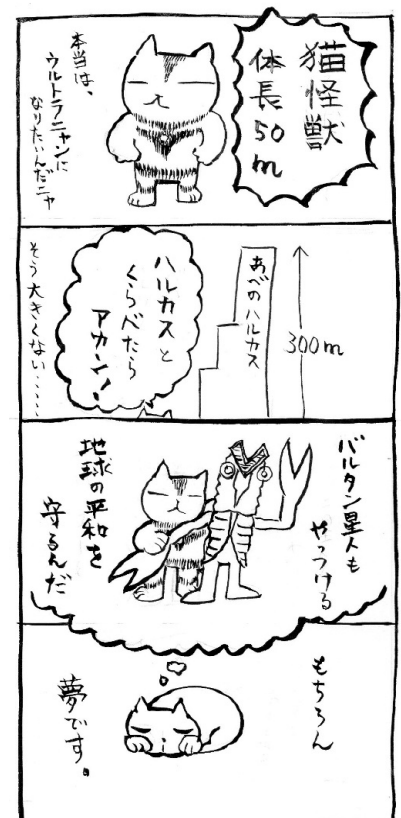 猫怪獣
体長50m
本当は、
ウルトラニャンに
なりたいんだニャ
300m
あべのハルカス
ハルカスと
くらべたら
アカン!
そう大きくない・・・・・
バルタン星人も
やっつける
地球の平和を
守るんだ
もちろん
夢です。